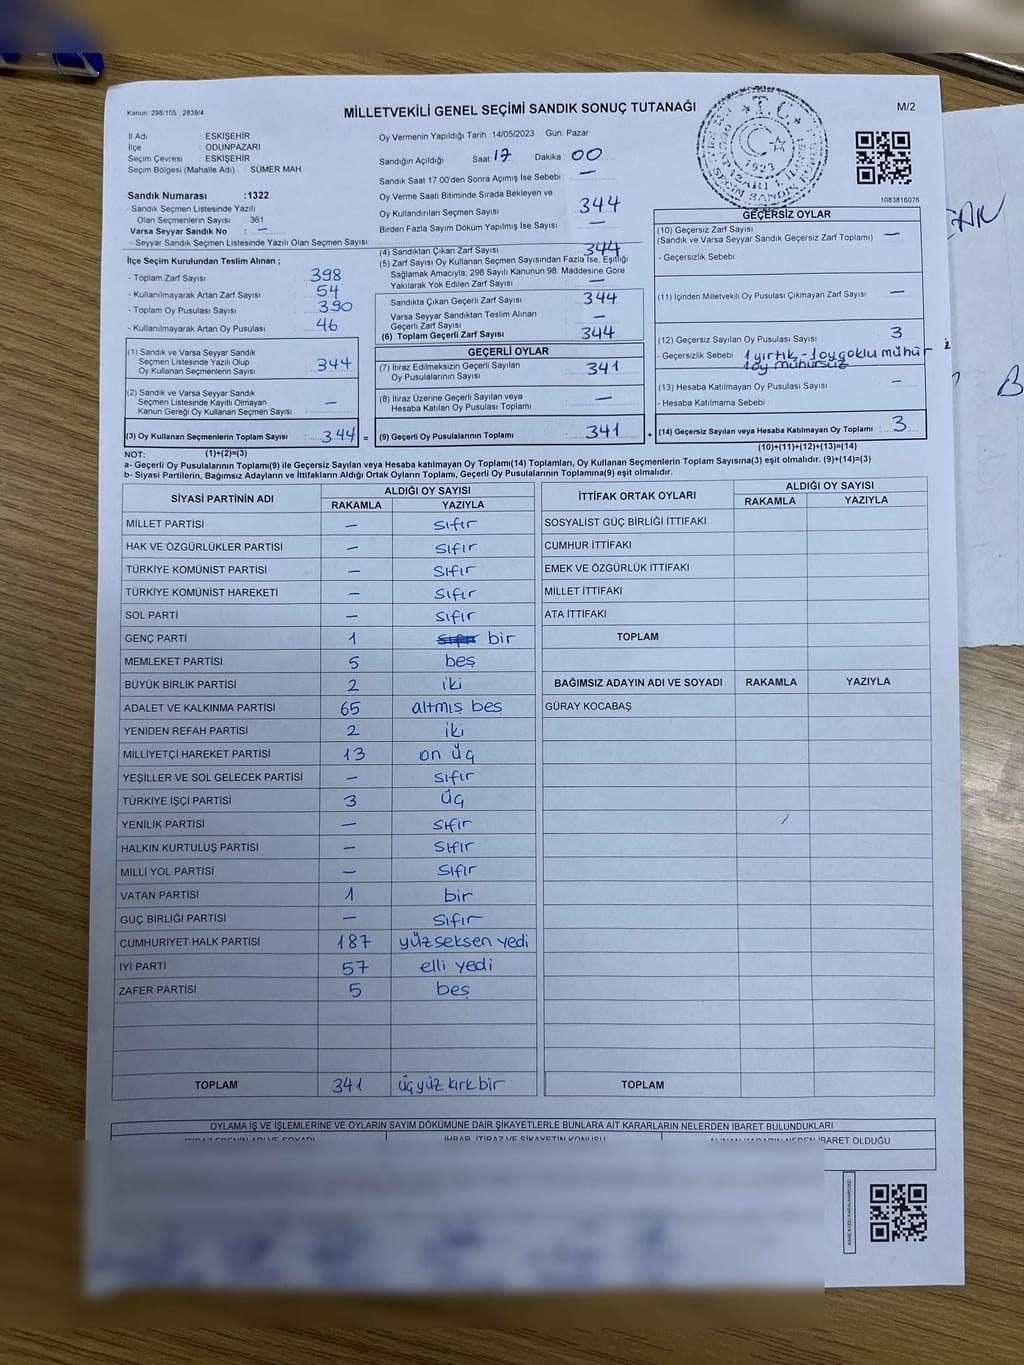 Kanun: 298/105, 2839/4
MİLLETVEKİLİ GENEL SEÇİMİ SANDIK SONUÇ TUTANAĞI
M/2
İl Adı ESKİŞEHİR
İlçe ODUNPAZARI
Seçim Çevresi ESKİŞEHİR
Seçim Bölgesi (Mahalle Adı) : SÜMER MAH.
Sandık Numarası :1322
- Sandık Seçmen Listesinde Yazılı
Olan Seçmenlerin Sayısı : 361
Varsa Seyyar Sandık No : —
- Seyyar Sandık Seçmen Listesinde Yazılı Olan Seçmen Sayısı:
Oy Vermenin Yapıldığı Tarih : 14/05/2023 Gün: Pazar
Sandığın Açıldığı Saat: 17 Dakika : 00
Sandık Saat 17:00'den Sonra Açımış İse Sebebi : —
Oy Verme Saati Bitiminde Sırada Bekleyen ve
Oy Kullandırılan Seçmen Sayısı : 344
Birden Fazla Sayım Döküm Yapılmış İse Sayısı : —
(4) Sandıktan Çıkan Zarf Sayısı : 344
(5) Zarf Sayısı Oy Kullanan Seçmen Sayısından Fazla İse, Eşitliği
Sağlamak Amacıyla; 298 Sayılı Kanunun 98. Maddesine Göre
Yakılarak Yok Edilen Zarf Sayısı : —
T.C.
1923
1083816076
İlçe Seçim Kurulundan Teslim Alınan ;
- Toplam Zarf Sayısı : 398
- Kullanılmayarak Artan Zarf Sayısı : 54
- Toplam Oy Pusulası Sayısı : 390
- Kullanılmayarak Artan Oy Pusulası : 46
(1) Sandık ve Varsa Seyyar Sandık
Seçmen Listesinde Yazılı Olup
Oy Kullanan Seçmenlerin Sayısı : 344
(2) Sandık ve Varsa Seyyar Sandık
Seçmen Listesinde Kayıtlı Olmayan
Kanun Gereği Oy Kullanan Seçmen Sayısı : —
(3) Oy Kullanan Seçmenlerin Toplam Sayısı : 344 =
Sandıkta Çıkan Geçerli Zarf Sayısı : 344
Varsa Seyyar Sandıktan Teslim Alınan
Geçerli Zarf Sayısı : —
(6) Toplam Geçerli Zarf Sayısı : 344
GEÇERLİ OYLAR
(7) İtiraz Edilmeksizin Geçerli Sayılan
Oy Pusulalarının Sayısı : 341
(8) İtiraz Üzerine Geçerli Sayılan veya
Hesaba Katılan Oy Pusulası Toplamı : —
(9) Geçerli Oy Pusulalarının Toplamı : 341 +
GEÇERSİZ OYLAR
(10) Geçersiz Zarf Sayısı : —
(Sandık ve Varsa Seyyar Sandık Geçersiz Zarf Toplamı)
- Geçersizlik Sebebi :
(11) İçinden Milletvekili Oy Pusulası Çıkmayan Zarf Sayısı : —
(12) Geçersiz Sayılan Oy Pusulası Sayısı : 3
- Geçersizlik Sebebi : 1 yırtık - 1 oy çoklu mühür
1 oy mühürsüz
(13) Hesaba Katılmayan Oy Pusulası Sayısı : —
- Hesaba Katılmama Sebebi :
(14) Geçersiz Sayılan veya Hesaba Katılmayan Oy Toplamı : 3
NOT: (1)+(2)=(3) (10)+(11)+(12)+(13)=(14)
a- Geçerli Oy Pusulalarının Toplamı(9) ile Geçersiz Sayılan veya Hesaba katılmayan Oy Toplamı(14) Toplamları, Oy Kullanan Seçmenlerin Toplam Sayısına(3) eşit olmalıdır. (9)+(14)=(3)
b- Siyasi Partilerin, Bağımsız Adayların ve İttifakların Aldığı Ortak Oyların Toplamı, Geçerli Oy Pusulalarının Toplamına(9) eşit olmalıdır.
SİYASİ PARTİNİN ADI ALDIĞI OY SAYISI
RAKAMLA YAZIYLA
MİLLET PARTİSİ — sıfır
HAK VE ÖZGÜRLÜKLER PARTİSİ — sıfır
TÜRKİYE KOMÜNİST PARTİSİ — sıfır
TÜRKİYE KOMÜNİST HAREKETİ — sıfır
SOL PARTİ — sıfır
GENÇ PARTİ 1 sıfır bir
MEMLEKET PARTİSİ 5 beş
BÜYÜK BİRLİK PARTİSİ 2 iki
ADALET VE KALKINMA PARTİSİ 65 altmış beş
YENİDEN REFAH PARTİSİ 2 iki
MİLLİYETÇİ HAREKET PARTİSİ 13 on üç
YEŞİLLER VE SOL GELECEK PARTİSİ — sıfır
TÜRKİYE İŞÇİ PARTİSİ 3 üç
YENİLİK PARTİSİ — sıfır
HALKIN KURTULUŞ PARTİSİ — sıfır
MİLLİ YOL PARTİSİ — sıfır
VATAN PARTİSİ 1 bir
GÜÇ BİRLİĞİ PARTİSİ — sıfır
CUMHURİYET HALK PARTİSİ 187 yüz seksen yedi
İYİ PARTİ 57 elli yedi
ZAFER PARTİSİ 5 beş
TOPLAM 341 üç yüz kırk bir
İTTİFAK ORTAK OYLARI ALDIĞI OY SAYISI
RAKAMLA YAZIYLA
SOSYALİST GÜÇ BİRLİĞİ İTTİFAKI
CUMHUR İTTİFAKI
EMEK VE ÖZGÜRLÜK İTTİFAKI
MİLLET İTTİFAKI
ATA İTTİFAKI
TOPLAM
BAĞIMSIZ ADAYIN ADI VE SOYADI RAKAMLA YAZIYLA
GÜRAY KOCABAŞ
TOPLAM
OYLAMA İŞ VE İŞLEMLERİNE VE OYLARIN SAYIM DÖKÜMÜNE DAİR ŞİKAYETLERLE BUNLARA AİT KARARLARIN NELERDEN İBARET BULUNDUKLARI
İTİRAZ EDENİN ADI VE SOYADI İHBAR, İTİRAZ VE ŞİKAYETİN KONUSU ALINAN KARARIN NEDEN İBARET OLDUĞU